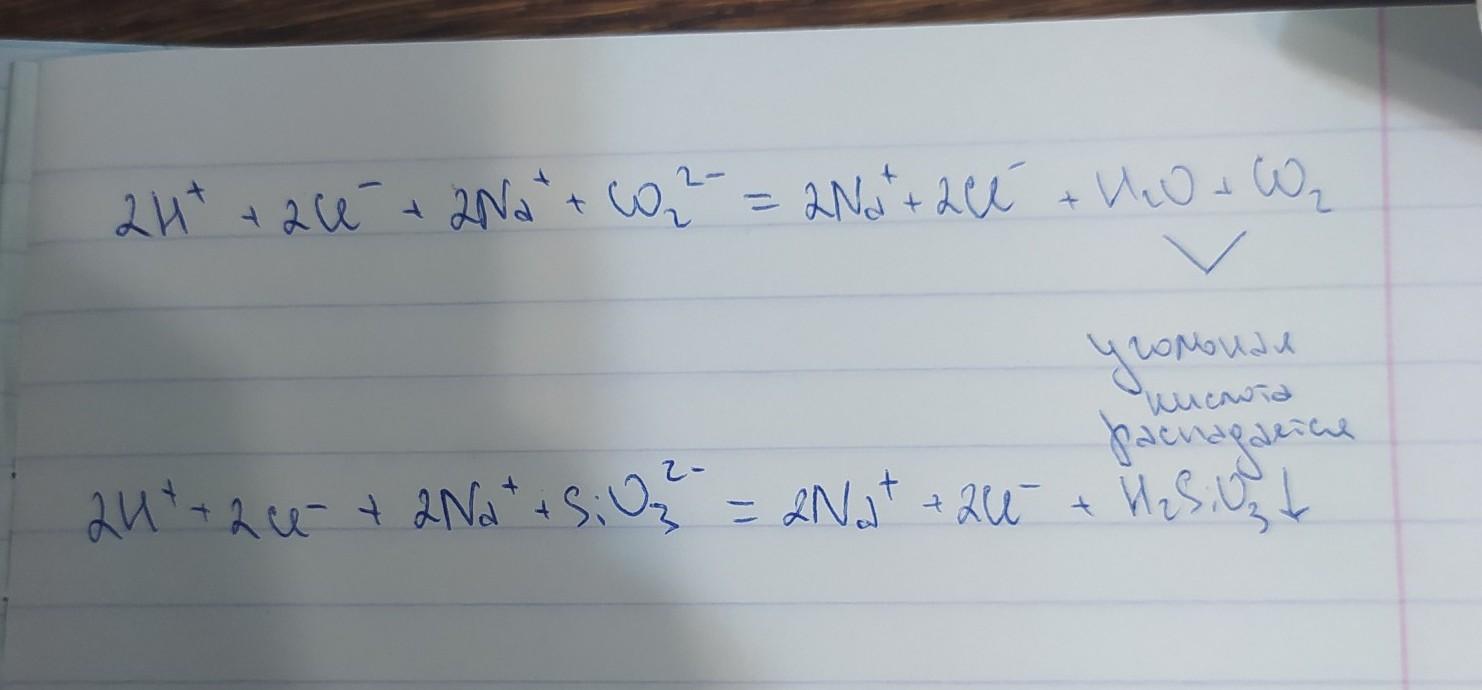 2H⁺ + 2Cl⁻ + 2Na⁺ + CO₂²⁻ = 2Na⁺ + 2Cl⁻ + H₂O + CO₂
угольная
кислота
распадается
2H⁺ + 2Cl⁻ + 2Na⁺ + SiO₃²⁻ = 2Na⁺ + 2Cl⁻ + H₂SiO₃↓